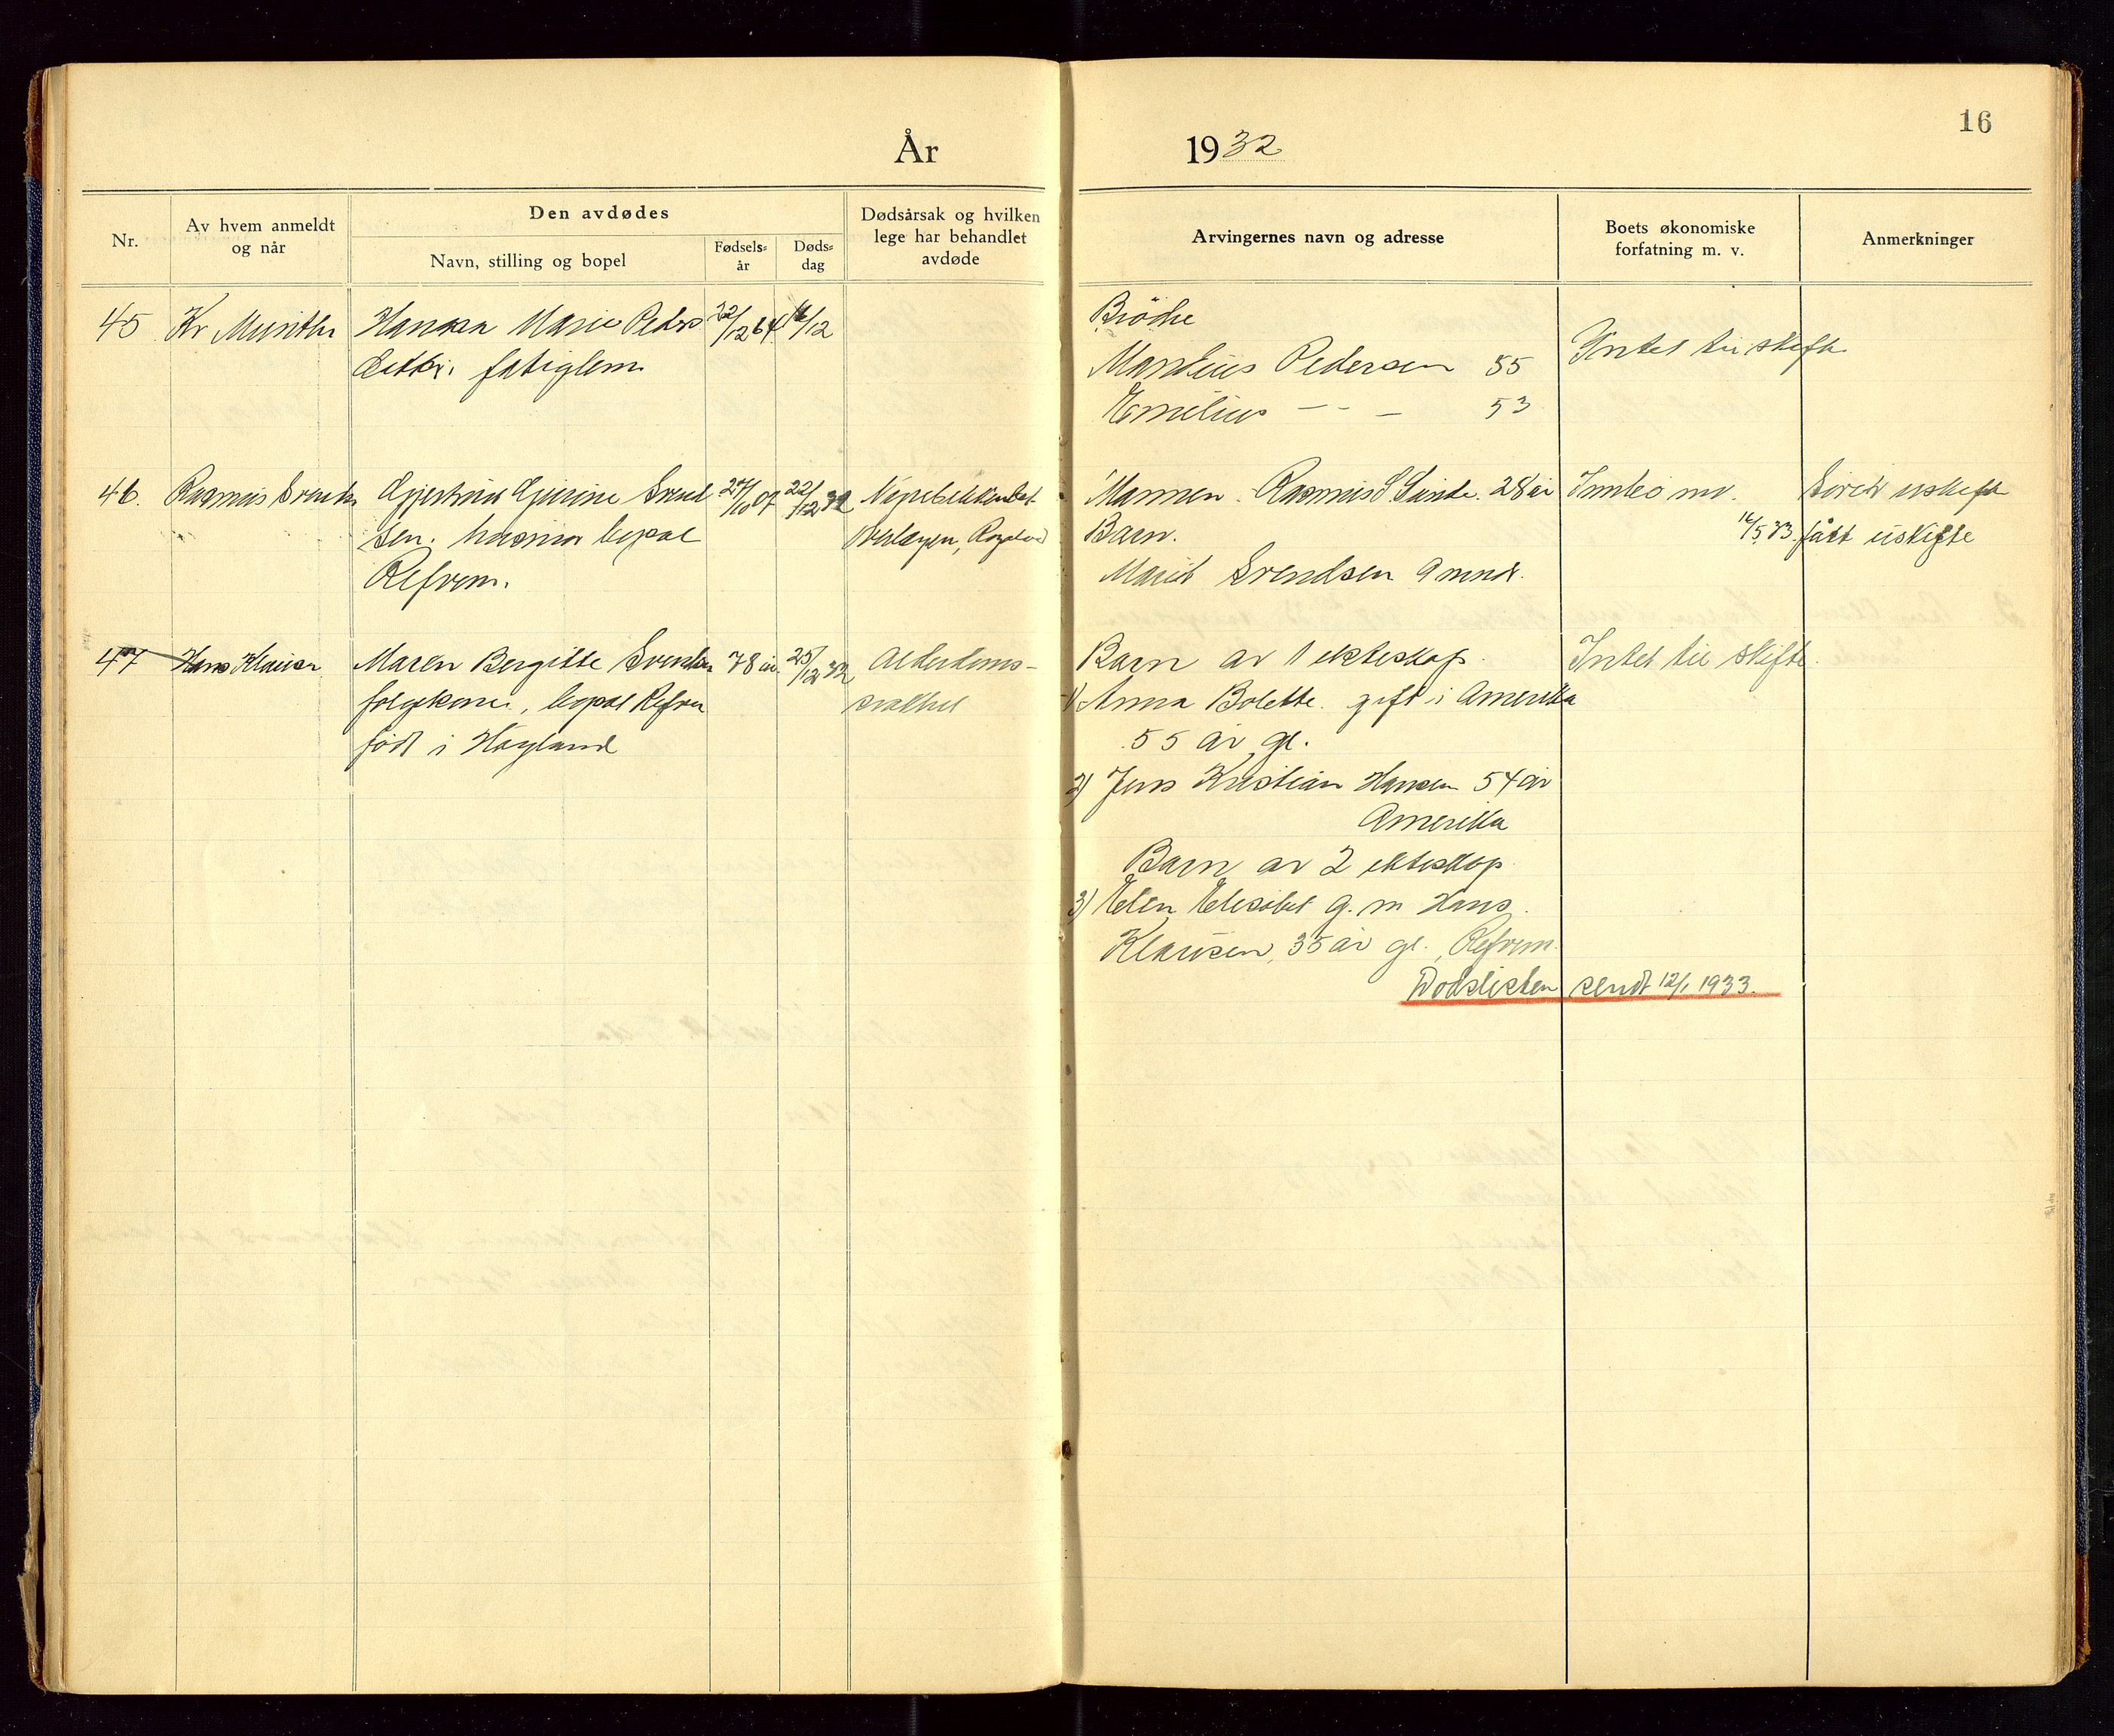 16
År 1932
Nr.
Av hvem anmeldt
og når
Den avdødes
Navn, stilling og bopel
Fødsels-
år
Døds-
dag
Dødsårsak og hvilken
lege har behandlet
avdøde
Arvingernes navn og adresse
Boets økonomiske
forfatning m. v.
Anmerkninger
45 Kr Munthe Hanna Marie Peders 22/12 64 16/12
datter. fatiglem
Brødre
Mandius Pedersen 55
Emilius — — 53
Intet til skifte
46. Rasmus Svends Gjertrine Gjurine Svend 24/10 07 22/12 32
sen. husmor bopæl
Refvem.
Nyrebekkenbet.
Mannen. Rasmus S. 28 år
Barn.
Marit Svendsen 9 mndr.
Innbo mv. uskifte
16/5 33. fått uskifte
47 Hans Klausen Maren Bergitte Svendsen 78 år. 25/12 32
folgekone, bopæl Refvem
født i Høyland
Alderdoms-
svakhet
Barn av 1 ekteskap.
1) Anna Bolette. gift i Amerika
55 år gl.
2) Jens Kristian Hansen 54 år
Amerika
Barn av 2 ekteskap
3) Elen Elesabet g. m Hans
Klausen, 35 år gl., Refvem.
Intet til skifte.
Dødslisten sendt 12/1 1933.